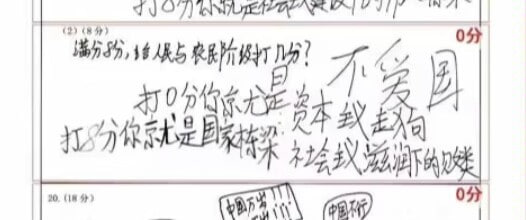 打8分你就是社会
0分
(2)(8分)
满分8分,给人民与农民阶级打几分?
不爱国
打0分你就是资本主义走狗
打8分你就是国家栋梁 社会主义滋润下的
0分
20.(18分)
中国万岁!!!
中国不行